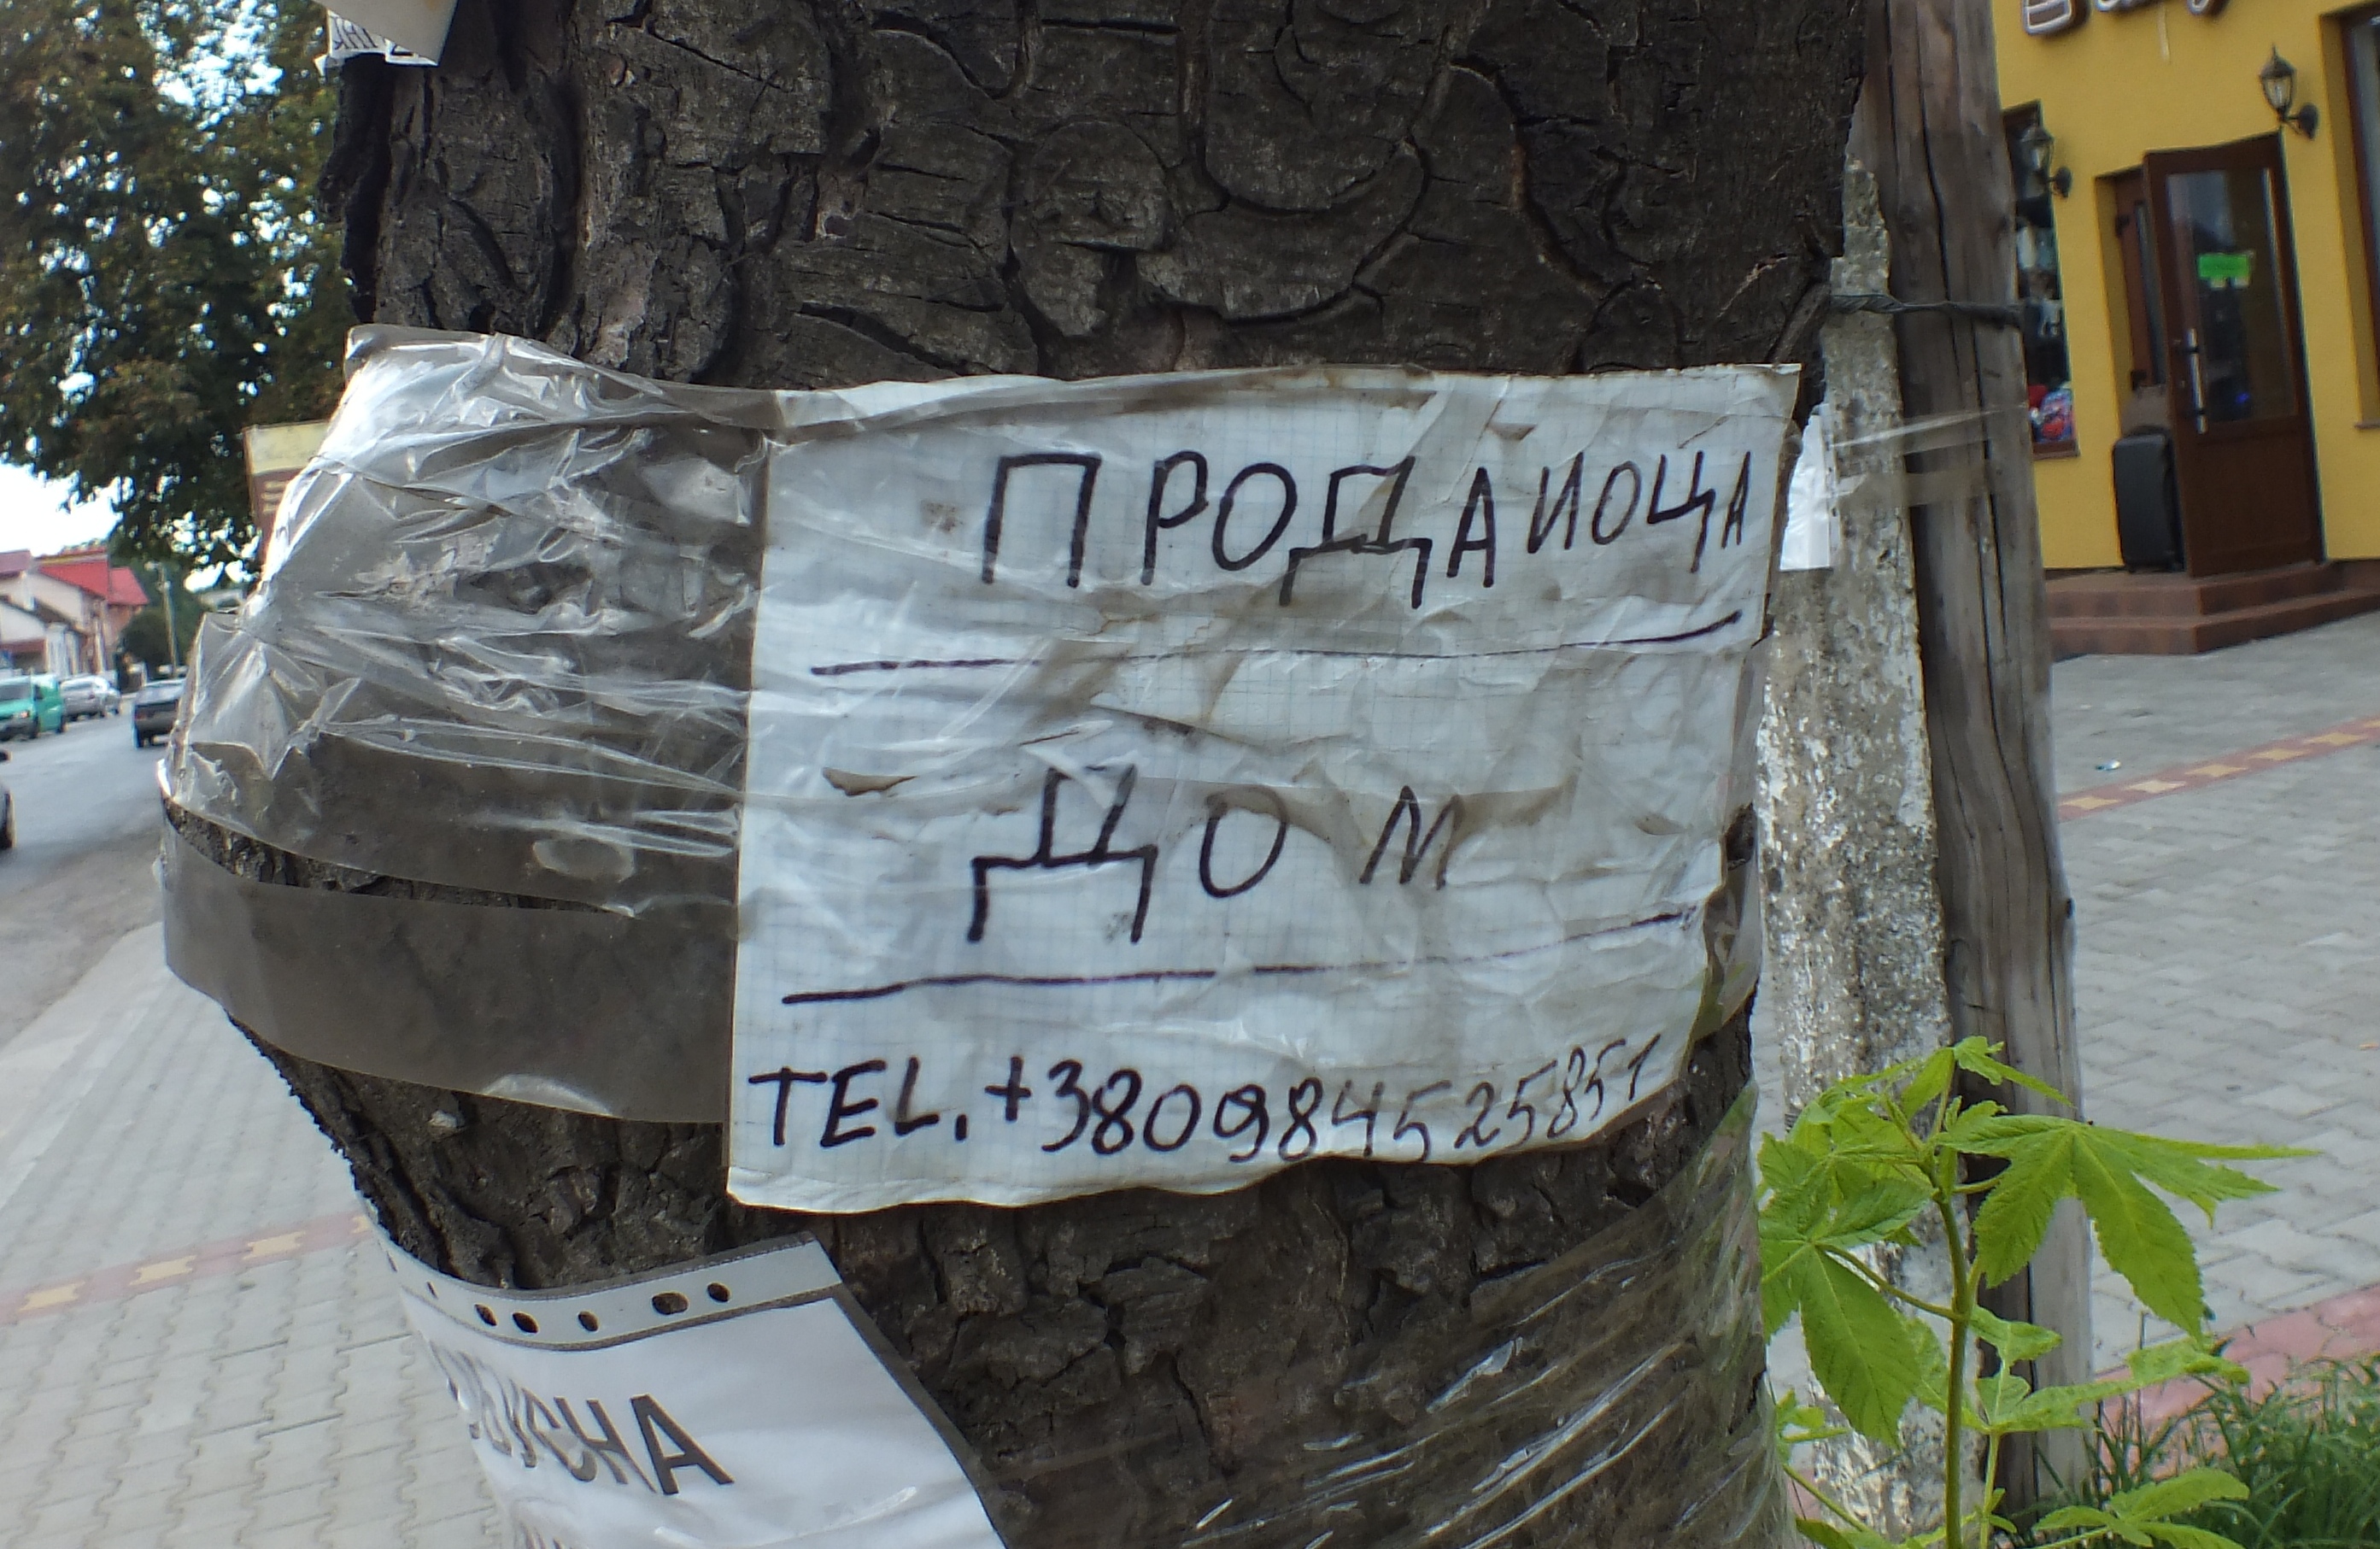 ПРОДАИОЦА
ДОМ
TEL. +380984525851